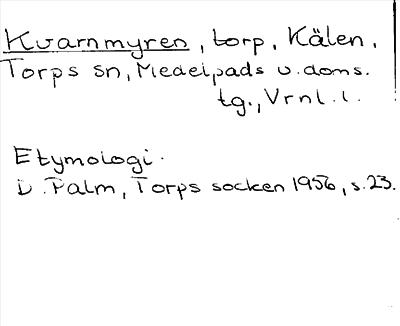 Kvarnmyren, torp, Kälen,
Torps sn, Medelpads v. doms.
tg., Vrnl. l.
Etymologi.
D. Palm, Torps socken 1956, s. 23.